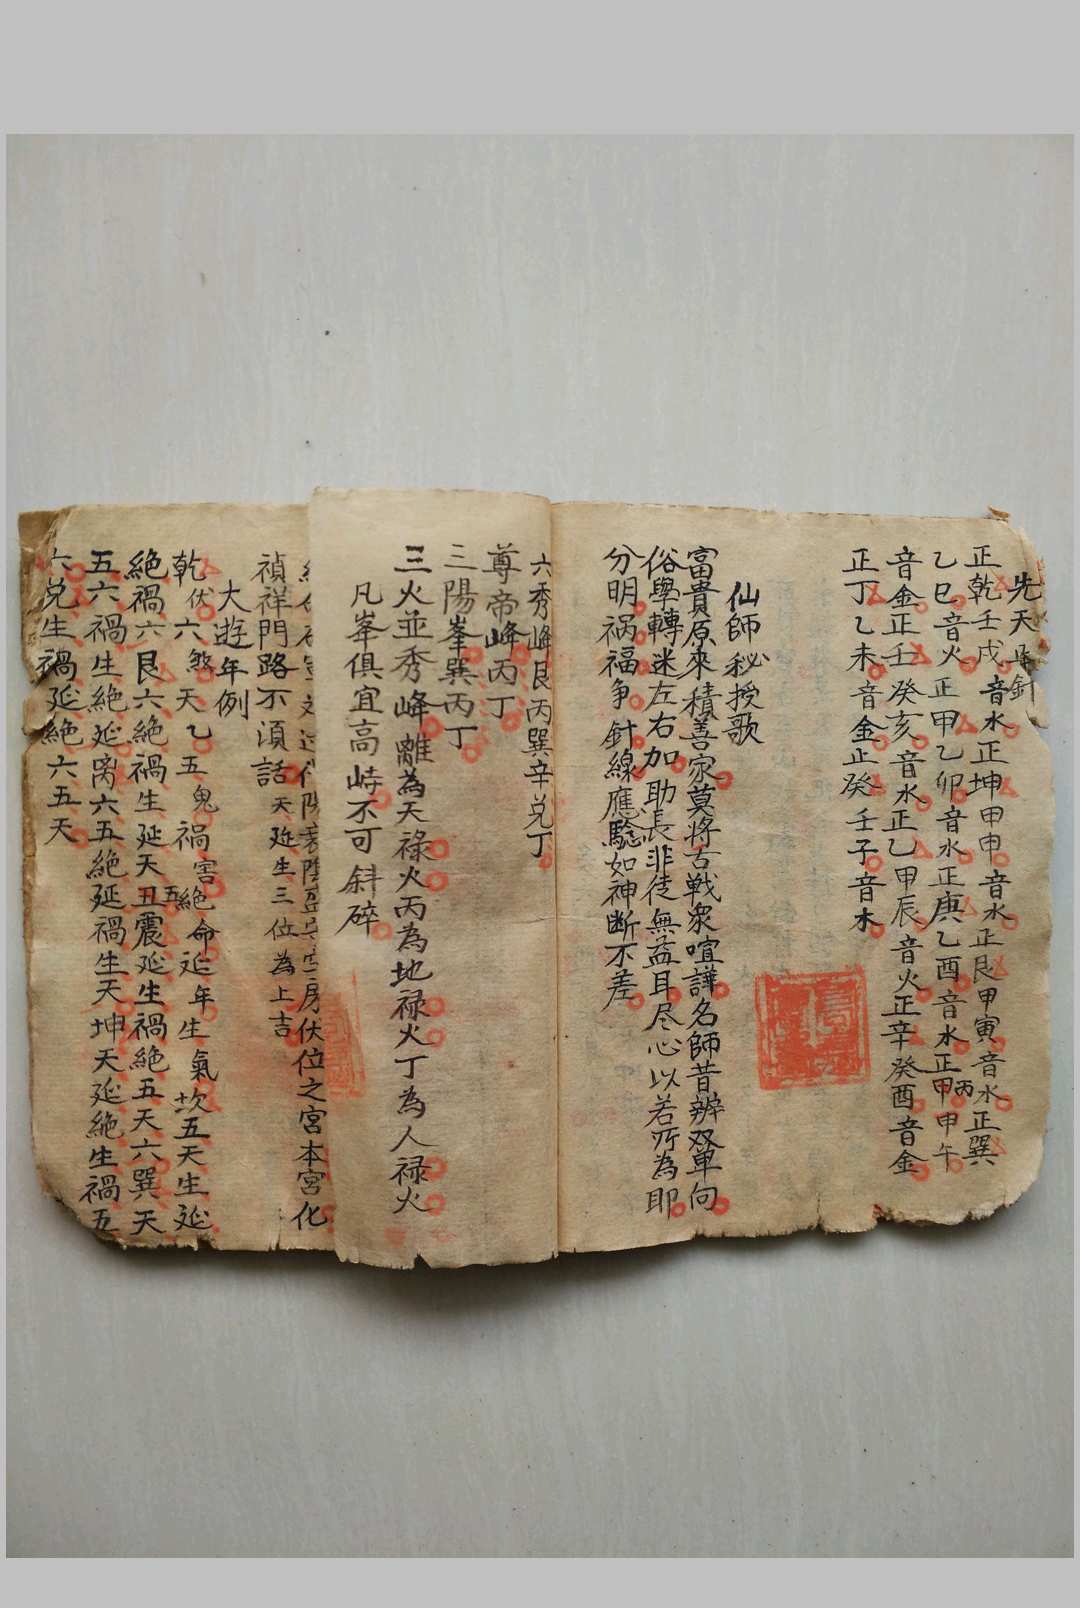 先天 針
正乾壬戌音水正坤甲申音水正艮甲寅音水正巽
乙巳音火正甲乙卯音水正庚乙酉音水正丙甲午
音金正壬癸亥音水正乙甲辰音火正辛癸酉音金
正丁乙未音金正癸壬子音木
仙師秘授歌
富貴原來積善家莫將古戰眾喧譁名師昔辨双單向
俗學轉迷左右加助長非徒無益耳尽心以若所為耶
分明祸福争針線應驗如神断不差
六秀峰艮丙巽辛兑丁
尊帝峰丙丁
三陽峯巽丙丁
三火並秀峰離為天禄火丙為地禄火丁為人禄火
凡峯俱宜高峙不可斜碎
房伏位之宮本宮化
禎祥門路不須話天延生三位為上吉
大遊年例
乾伏六煞天乙五鬼禍害絕命延年生氣坎五天生延
絕禍六艮六絕禍生延天五震延生禍絕五天六巽天
五六禍生絕延离六五絕延禍生天坤天延絕生禍五
六兑生禍延絕六五天